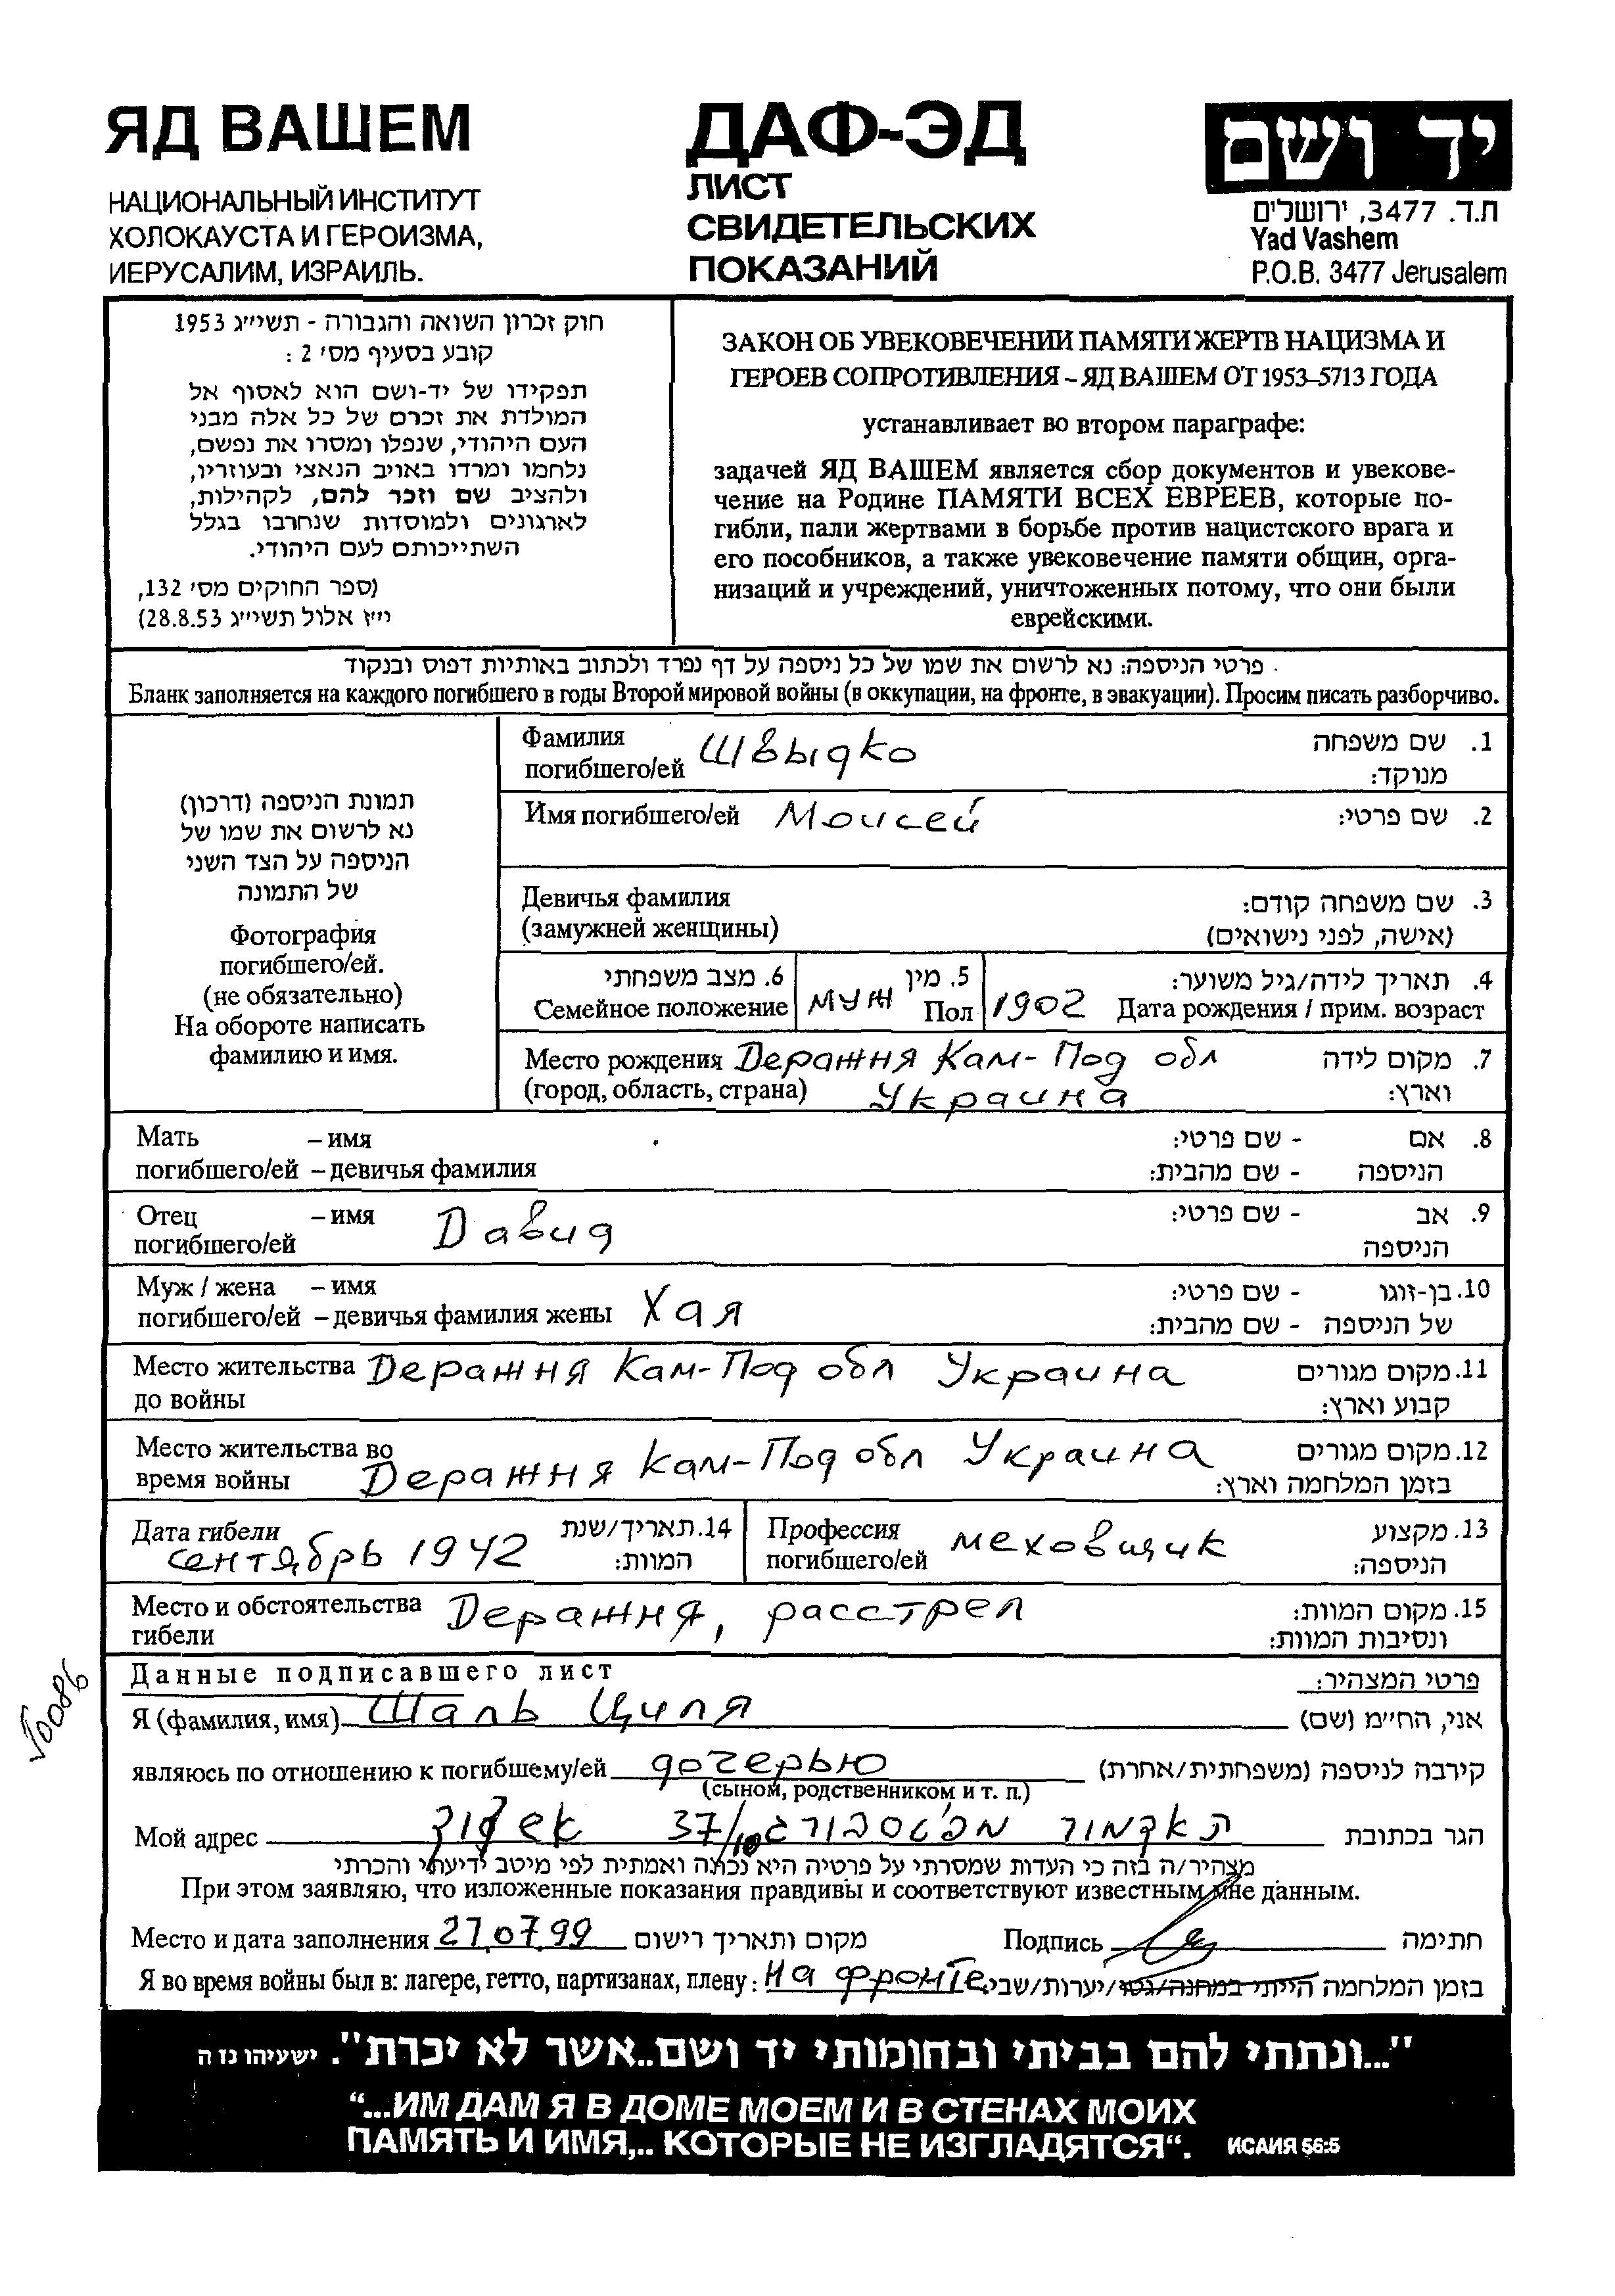 ЯД ВАШЕМ
НАЦИОНАЛЬНЫЙ ИНСТИТУТ
ХОЛОКАУСТА И ГЕРОИЗМА,
ИЕРУСАЛИМ, ИЗРАИЛЬ.
ДАФ-ЭД
ЛИСТ
СВИДЕТЕЛЬСКИХ
ПОКАЗАНИЙ
יד ושם
ת.ד. 3477, ירושלים
Yad Vashem
P.O.B. 3477 Jerusalem
חוק זכרון השואה והגבורה - תשי״ג 1953
קובע בסעיף מס׳ 2 :
תפקידו של יד-ושם הוא לאסוף אל
המולדת את זכרם של כל אלה מבני
העם היהודי, שנפלו ומסרו את נפשם,
נלחמו ומרדו באויב הנאצי ובעוזריו,
ולהציב שם וזכר להם, לקהילות,
לארגונים ולמוסדות שנחרבו בגלל
השתייכותם לעם היהודי.
(ספר החוקים מס׳ 132,
י״ז אלול תשי״ג 28.8.53)
ЗАКОН ОБ УВЕКОВЕЧЕНИИ ПАМЯТИ ЖЕРТВ НАЦИЗМА И
ГЕРОЕВ СОПРОТИВЛЕНИЯ – ЯД ВАШЕМ ОТ 1953–5713 ГОДА
устанавливает во втором параграфе:
задачей ЯД ВАШЕМ является сбор документов и увекове-
чение на Родине ПАМЯТИ ВСЕХ ЕВРЕЕВ, которые по-
гибли, пали жертвами в борьбе против нацистского врага и
его пособников, а также увековечение памяти общин, орга-
низаций и учреждений, уничтоженных потому, что они были
еврейскими.
פרטי הניספה: נא לרשום את שמו של כל ניספה על דף נפרד ולכתוב באותיות דפוס ובנקוד
Бланк заполняется на каждого погибшего в годы Второй мировой войны (в оккупации, на фронте, в эвакуации). Просим писать разборчиво.
תמונת הניספה (דרכון)
נא לרשום את שמו של
הניספה על הצד השני
של התמונה
Фотография
погибшего/ей.
(не обязательно)
На обороте написать
фамилию и имя.
Фамилия погибшего/ей Швыдко 1. שם משפחה
מנוקד:
Имя погибшего/ей Моисей 2. שם פרטי:
Девичья фамилия 3. שם משפחה קודם:
(замужней женщины) (אישה, לפני נישואים)
6. מצב משפחתי 5. מין 4. תאריך לידה/גיל משוער:
Семейное положение муж Пол 1902 Дата рождения / прим. возраст
Место рождения Деражня Кам-Под обл 7. מקום לידה
(город, область, страна) Украина וארץ:
Мать – имя 8. אם - שם פרטי:
погибшего/ей – девичья фамилия הניספה - שם מהבית:
Отец – имя Давид 9. אב - שם פרטי:
погибшего/ей הניספה
Муж / жена – имя 10. בן-זוגו - שם פרטי:
погибшего/ей – девичья фамилия жены Хая של הניספה - שם מהבית:
Место жительства Деражня Кам-Под обл Украина 11. מקום מגורים
до войны קבוע וארץ:
Место жительства во 12. מקום מגורים
время войны Деражня Кам-Под обл Украина בזמן המלחמה וארץ:
Дата гибели 14. תאריך/שנת Профессия 13. מקצוע
сентябрь 1942 המוות: погибшего/ей меховщик הניספה:
Место и обстоятельства Деражня, расстрел 15. מקום המוות:
гибели ונסיבות המוות:
Данные подписавшего лист פרטי המצהיר:
Я (фамилия, имя) Шаль Циля אני, הח״מ (שם)
являюсь по отношению к погибшему/ей дочерью קירבה לניספה (משפחתית/אחרת)
(сыном, родственником и т. п.)
Мой адрес 37/10 הגר בכתובת
מצהיר/ה בזה כי העדות שמסרתי על פרטיה היא נכונה ואמתית לפי מיטב ידיעתי והכרתי
При этом заявляю, что изложенные показания правдивы и соответствуют известным мне данным.
Место и дата заполнения 27.07.99 מקום ותאריך רישום Подпись חתימה
Я во время войны был в: лагере, гетто, партизанах, плену: на фронте בזמן המלחמה הייתי במחנה/גטו/יערות/שבי:
50086
"...ונתתי להם בביתי ובחומותי יד ושם..אשר לא יכרת". ישעיהו נו ה
“...ИМ ДАМ Я В ДОМЕ МОЕМ И В СТЕНАХ МОИХ
ПАМЯТЬ И ИМЯ,.. КОТОРЫЕ НЕ ИЗГЛАДЯТСЯ“. ИСАИЯ 56:5